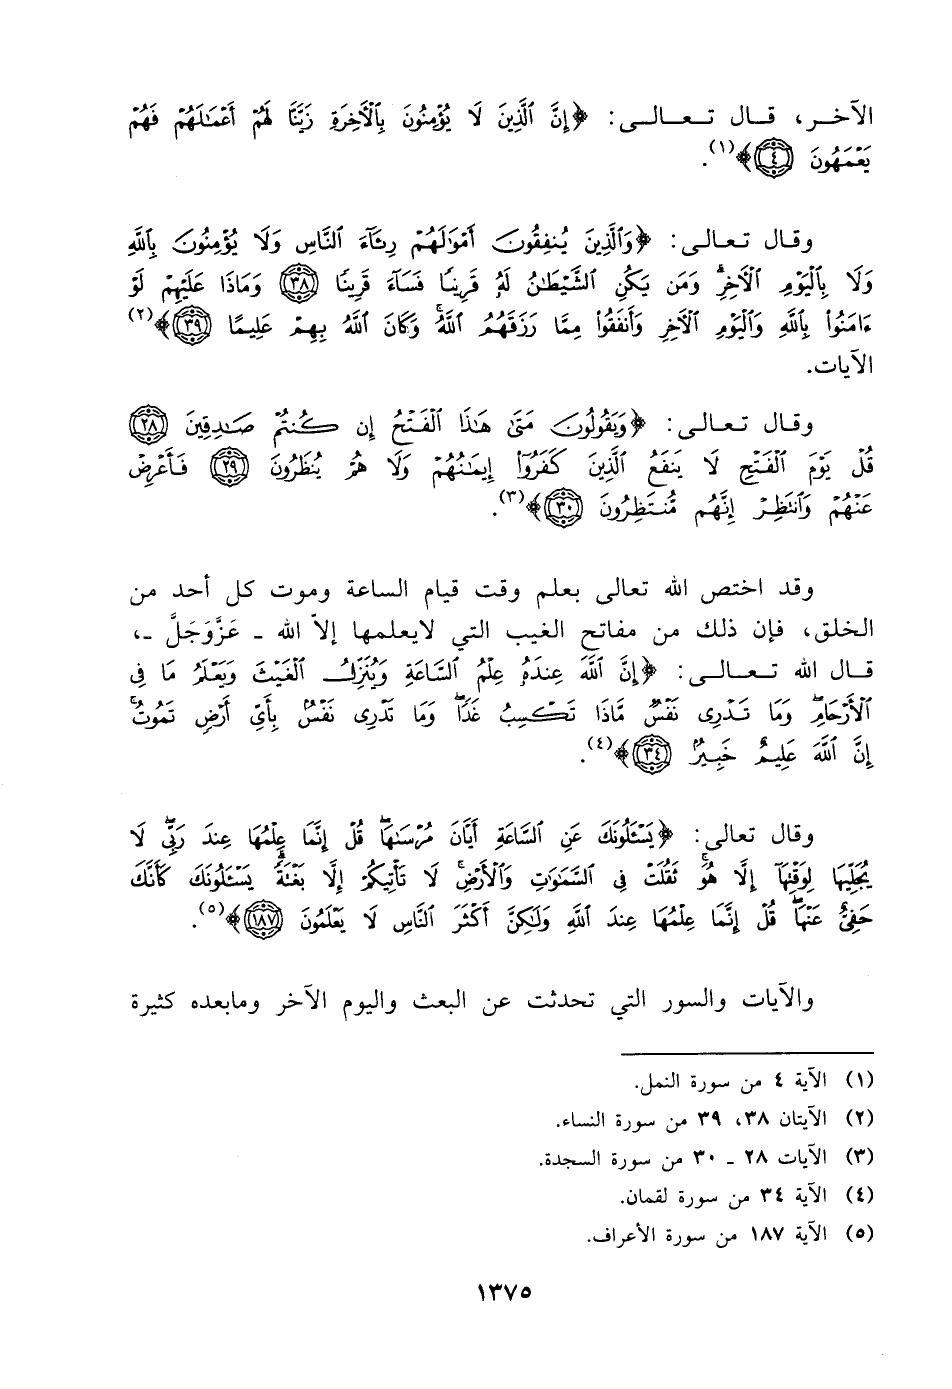 الآخـر، قـال تـعـالـى: ﴿إِنَّ ٱلَّذِينَ لَا يُؤۡمِنُونَ بِٱلۡأٓخِرَةِ زَيَّنَّا لَهُمۡ أَعۡمَٰلَهُمۡ فَهُمۡ
يَعۡمَهُونَ ٤﴾(١).
وقـال تـعـالـى: ﴿وَٱلَّذِينَ يُنفِقُونَ أَمۡوَٰلَهُمۡ رِئَآءَ ٱلنَّاسِ وَلَا يُؤۡمِنُونَ بِٱللَّهِ
وَلَا بِٱلۡيَوۡمِ ٱلۡأٓخِرِۗ وَمَن يَكُنِ ٱلشَّيۡطَٰنُ لَهُۥ قَرِينٗا فَسَآءَ قَرِينٗا ٣٨ وَمَاذَا عَلَيۡهِمۡ لَوۡ
ءَامَنُواْ بِٱللَّهِ وَٱلۡيَوۡمِ ٱلۡأٓخِرِ وَأَنفَقُواْ مِمَّا رَزَقَهُمُ ٱللَّهُۚ وَكَانَ ٱللَّهُ بِهِمۡ عَلِيمًا ٣٩﴾(٢)
الآيات.
وقـال تـعـالـى: ﴿وَيَقُولُونَ مَتَىٰ هَٰذَا ٱلۡفَتۡحُ إِن كُنتُمۡ صَٰدِقِينَ ٢٨
قُلۡ يَوۡمَ ٱلۡفَتۡحِ لَا يَنفَعُ ٱلَّذِينَ كَفَرُوٓاْ إِيمَٰنُهُمۡ وَلَا هُمۡ يُنظَرُونَ ٢٩ فَأَعۡرِضۡ
عَنۡهُمۡ وَٱنتَظِرۡ إِنَّهُم مُّنتَظِرُونَ ٣٠﴾(٣).
وقد اختص الله تعالى بعلم وقت قيام الساعة وموت كل أحد من
الخلق، فإن ذلك من مفاتح الغيب التي لايعلمها إلاّ الله ـ عَزَّوَجَلَّ ـ،
قـال الله تـعـالـى: ﴿إِنَّ ٱللَّهَ عِندَهُۥ عِلۡمُ ٱلسَّاعَةِ وَيُنَزِّلُ ٱلۡغَيۡثَ وَيَعۡلَمُ مَا فِي
ٱلۡأَرۡحَامِۖ وَمَا تَدۡرِي نَفۡسٞ مَّاذَا تَكۡسِبُ غَدٗاۖ وَمَا تَدۡرِي نَفۡسُۢ بِأَيِّ أَرۡضٖ تَمُوتُۚ
إِنَّ ٱللَّهَ عَلِيمٌ خَبِيرُۢ ٣٤﴾(٤).
وقال تعالى: ﴿يَسۡـَٔلُونَكَ عَنِ ٱلسَّاعَةِ أَيَّانَ مُرۡسَىٰهَاۖ قُلۡ إِنَّمَا عِلۡمُهَا عِندَ رَبِّيۖ لَا
يُجَلِّيهَا لِوَقۡتِهَآ إِلَّا هُوَۚ ثَقُلَتۡ فِي ٱلسَّمَٰوَٰتِ وَٱلۡأَرۡضِۚ لَا تَأۡتِيكُمۡ إِلَّا بَغۡتَةٗۗ يَسۡـَٔلُونَكَ كَأَنَّكَ
حَفِيٌّ عَنۡهَاۖ قُلۡ إِنَّمَا عِلۡمُهَا عِندَ ٱللَّهِ وَلَٰكِنَّ أَكۡثَرَ ٱلنَّاسِ لَا يَعۡلَمُونَ ١٨٧﴾(٥).
والآيات والسور التي تحدثت عن البعث واليوم الآخر ومابعده كثيرة
(١) الآية ٤ من سورة النمل.
(٢) الآيتان ٣٨، ٣٩ من سورة النساء.
(٣) الآيات ٢٨ ـ ٣٠ من سورة السجدة.
(٤) الآية ٣٤ من سورة لقمان.
(٥) الآية ١٨٧ من سورة الأعراف.
١٣٧٥